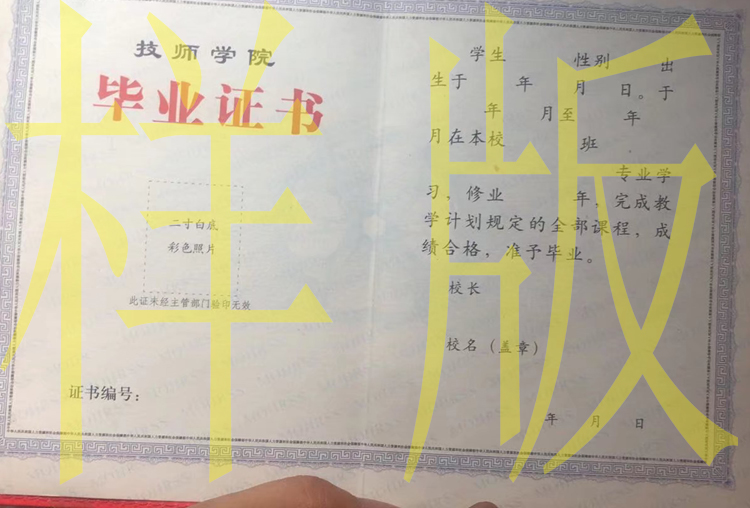 技师学院
毕业证书
二寸白底
彩色照片
此证未经主管部门验印无效
证书编号：
学生 性别 出
生于 年 月 日。于
年 月至 年
月在本校 班
专业学
习，修业 年，完成教
学计划规定的全部课程，成
绩合格，准予毕业。
校长
校名（盖章）
年 月 日
样版